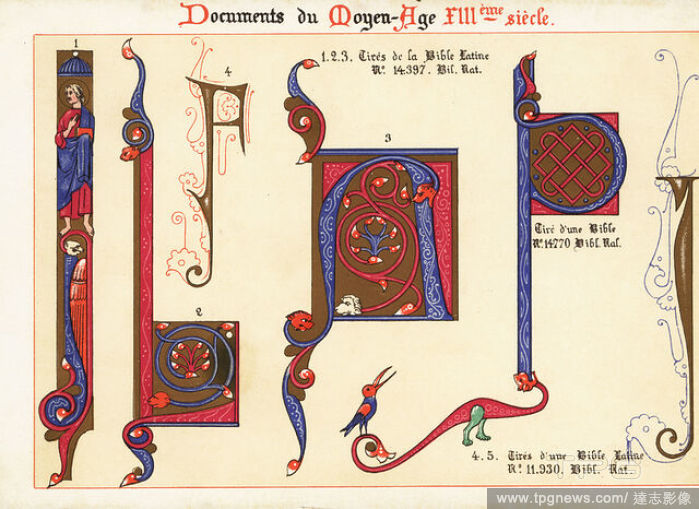 Documents du Moyen-Age XIII ème siècle.
1
4
1.2.3. Tirés de la Bible Latine
Nº 14.397. Bib. Nat.
3
Tiré d'une Bible
Nº 14770 Bibl. Nat.
2
4.5. Tirés d'une Bible Latine
Nº 11.930. Bibl. Nat.
www.tpgnews.com/達志影像